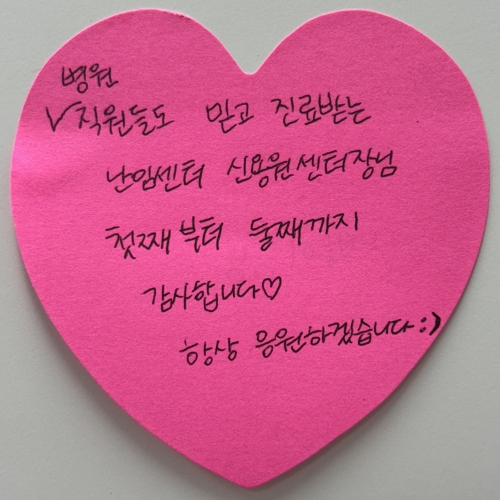 병원
✓직원들도 믿고 진료받는
난임센터 신용원센터장님
첫째부터 둘째까지
감사합니다♡
항상 응원하겠습니다:)